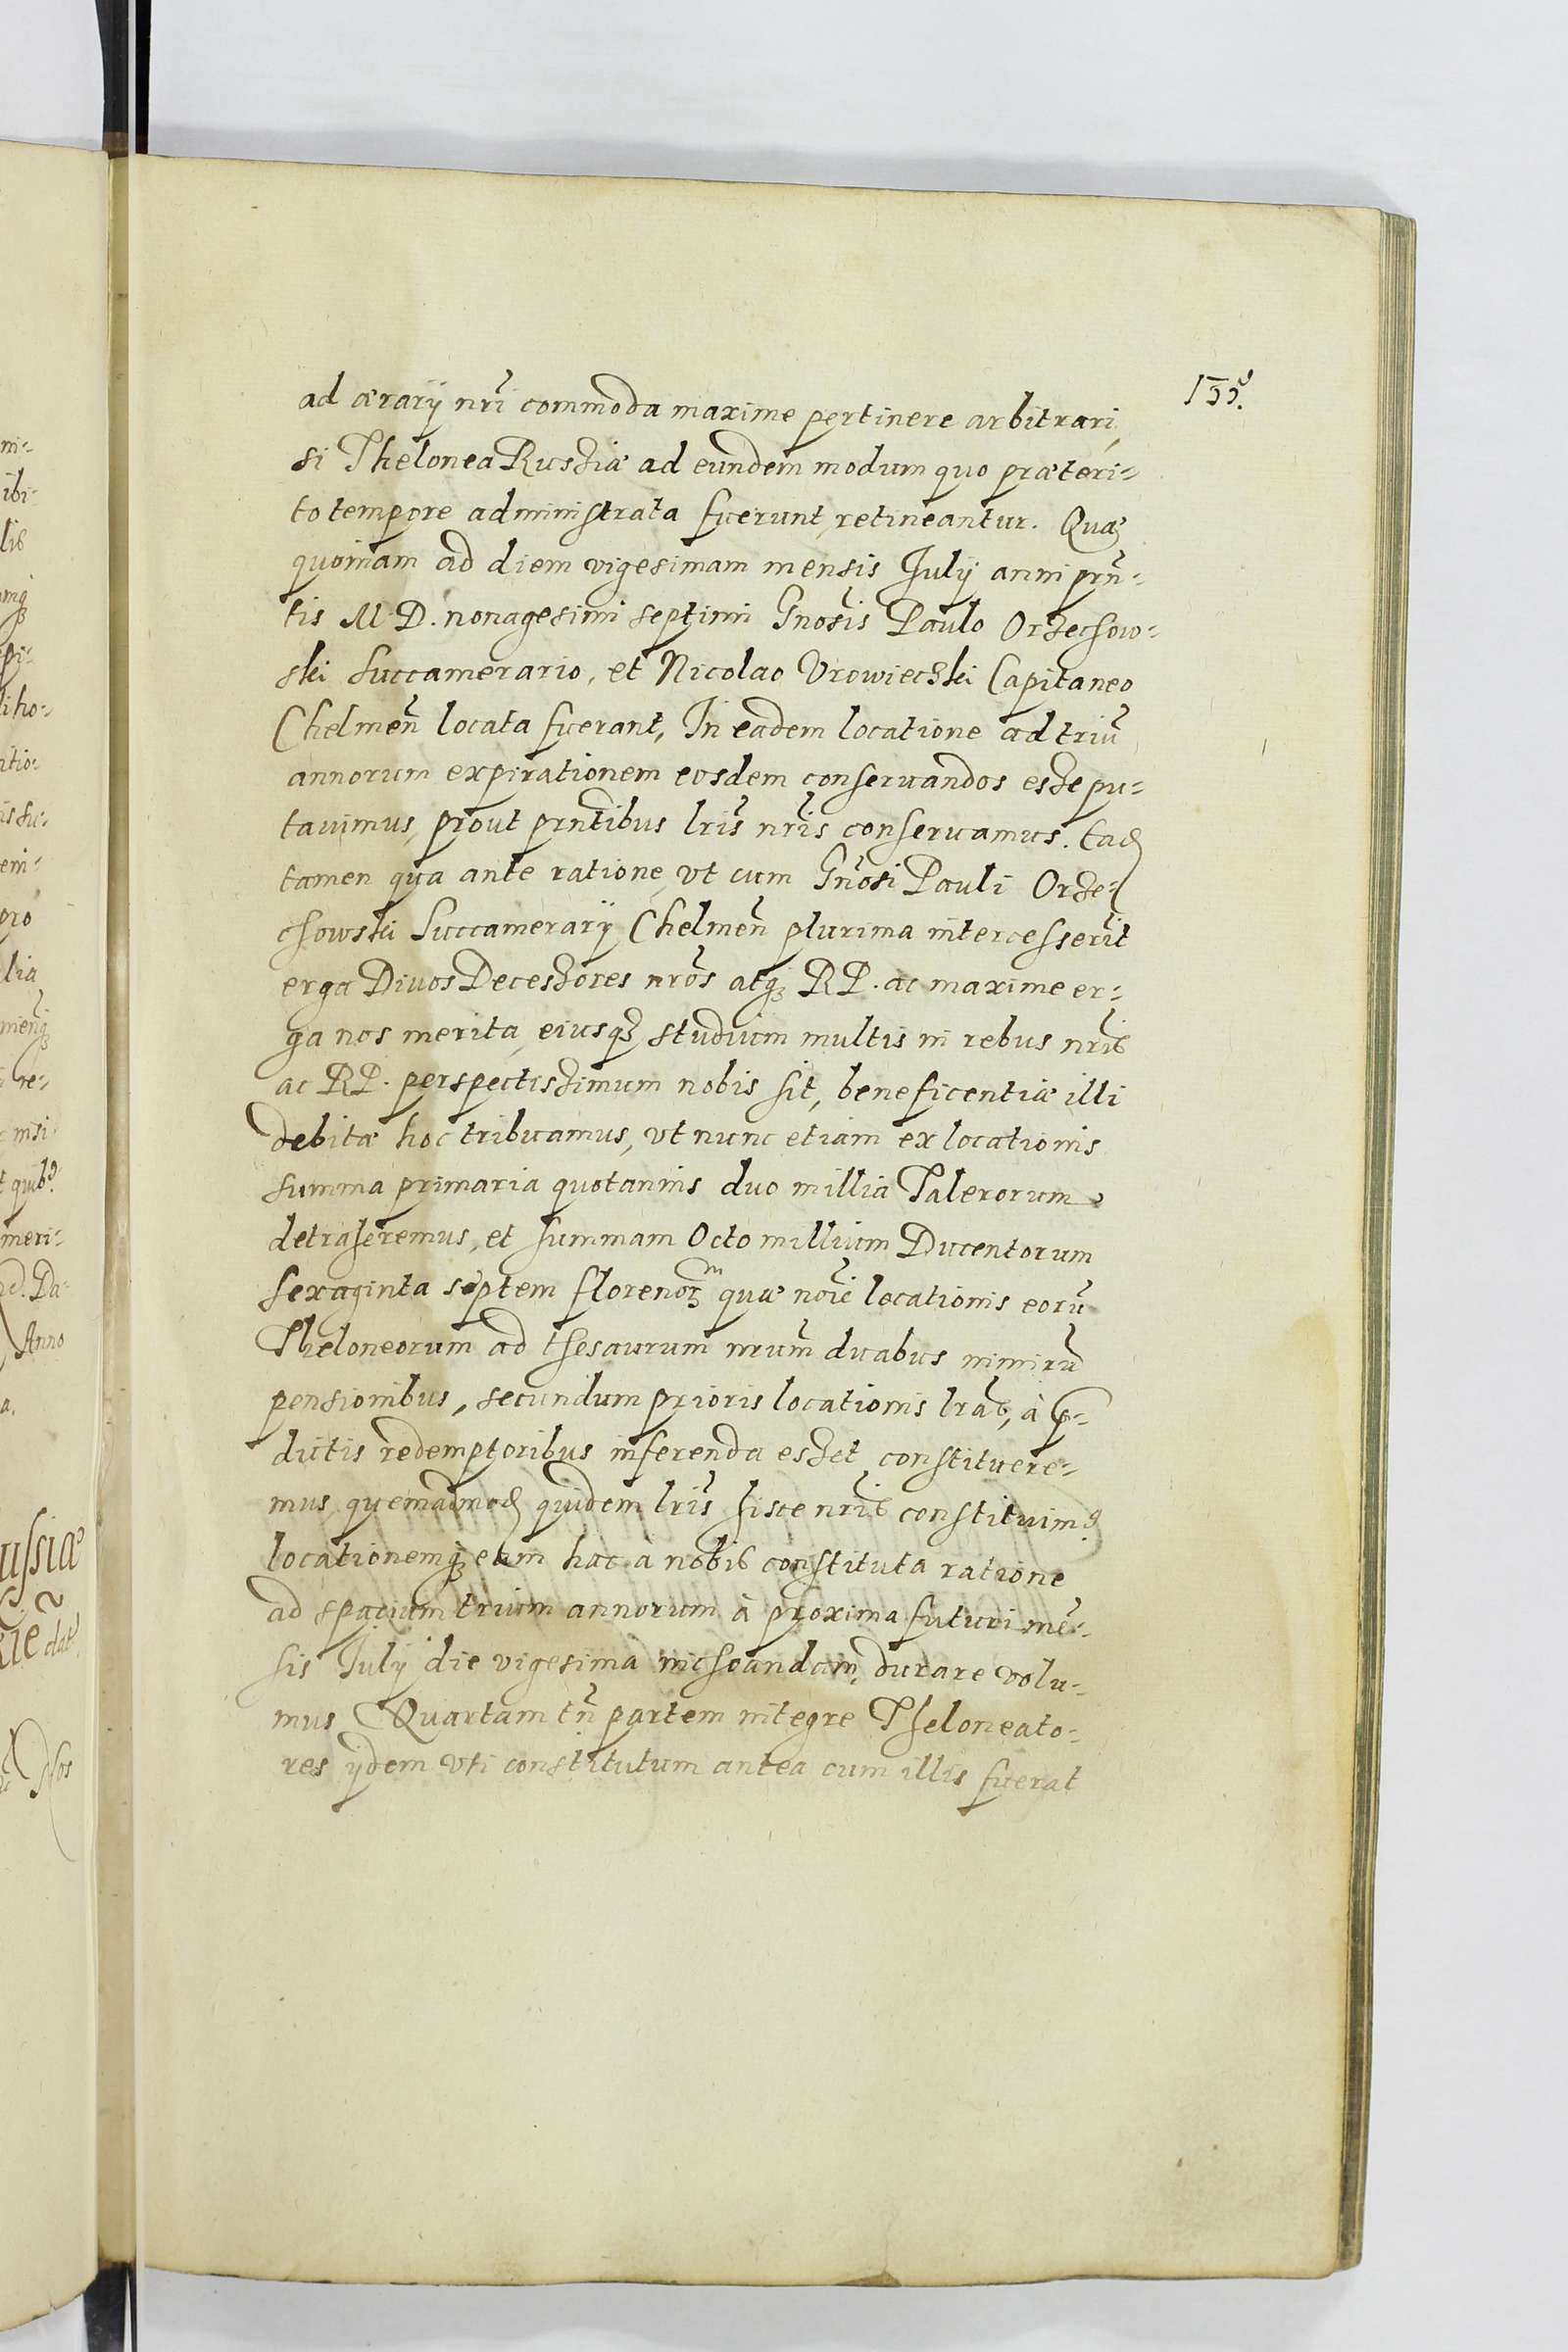 155.
ad ærarÿ nr̃i commoda maxime pertinere arbitrari,
si Thelonea Russiæ ad eundem modum quo præteri-
to tempore administrata fuerunt, retineantur. Quæ
quoniam ad diem vigesimam mensis Julÿ anni prñ-
tis M.D. nonagesimi septimi Gnosis Paulo Orzechow-
ski Succamerario, et Nicolao Vrowiecski Capitaneo
Chelmeñ locata fuerant, In eadem locatione ad triũ
annorum expirationem eosdem conservandos esse pu-
tavimus, prout prñtibus lrĩs nrĩs conservamus. Ead
tamen qua ante ratione, vt cum Gnosi Pauli Orze-
chowski Succamerarÿ Chelmeñ plurima intercesserĩt
erga Divos Decessores nrõs atq₃ RP. ac maxime er-
ga nos merita, eiusq₃ studium multis in rebus nrĩs
ac RP. perspectissimum nobis sit, beneficentiæ illi
debitæ hoc tribuamus, vt nunc etiam ex locationis
summa primaria quotannis duo millia Talerorum
detraheremus, et summam Octo millium Ducentorum
sexaginta septem florenor₃ quæ noĩe locationis eorũ
Theloneorum ad thesaurum nrum̃ duabus nimirũ
pensionibus, secundum prioris locationis lrãs, à p-
dictis redemptoribus inferenda esset constituere-
mus, quemadmod quidem lrĩs hisce nrĩs constituim9
locationemq₃ eam hac à nobis constituta ratione
ad spacium trium annorum à proxima futuri mẽ-
sis Julÿ die vigesima inchoandam, durare volu-
mus Quartam tñ partem integre Theloneato-
res ÿdem vti constitutum antea cum illis fuerat